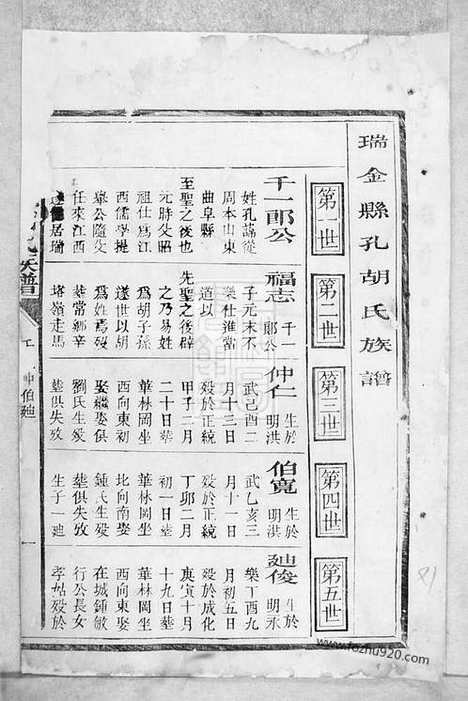 瑞金縣孔胡氏族譜
第一世
第二世
第三世
第四世
第五世
千一郎公
姓孔諱從
周本山東
曲阜縣
至聖之後也
元時父昭
祖仕爲江
西儒學提
舉公隨父
任來江西
居瑞
福志
千一
郎公
子元末不
樂仕進當
道以
先聖之後辟
之乃易姓
爲胡子孫
遂世以胡
爲姓焉歿
葬常鄉辛
塔嶺走馬
仲仁
生於
明洪
武己酉二
月十三日
歿於正統
甲子二月
二十日葬
華林岡坐
北向南娶
娶繼娶俱
劉氏生歿
葬俱失攷
伯寬
生於
明洪
武乙亥三
月十一日
歿於正統
丁卯二月
初一日葬
華林岡坐
比向南娶
鍾氏生歿
葬俱失攷
生子一廸
廸俊
生於
明永
樂丁酉九
月初五日
歿於成化
庚寅十月
十九日葬
華林岡坐
西向東娶
在城鍾敏
行公長女
孝姑歿於
族譜
仲伯廸
一
www.fozhu920.com